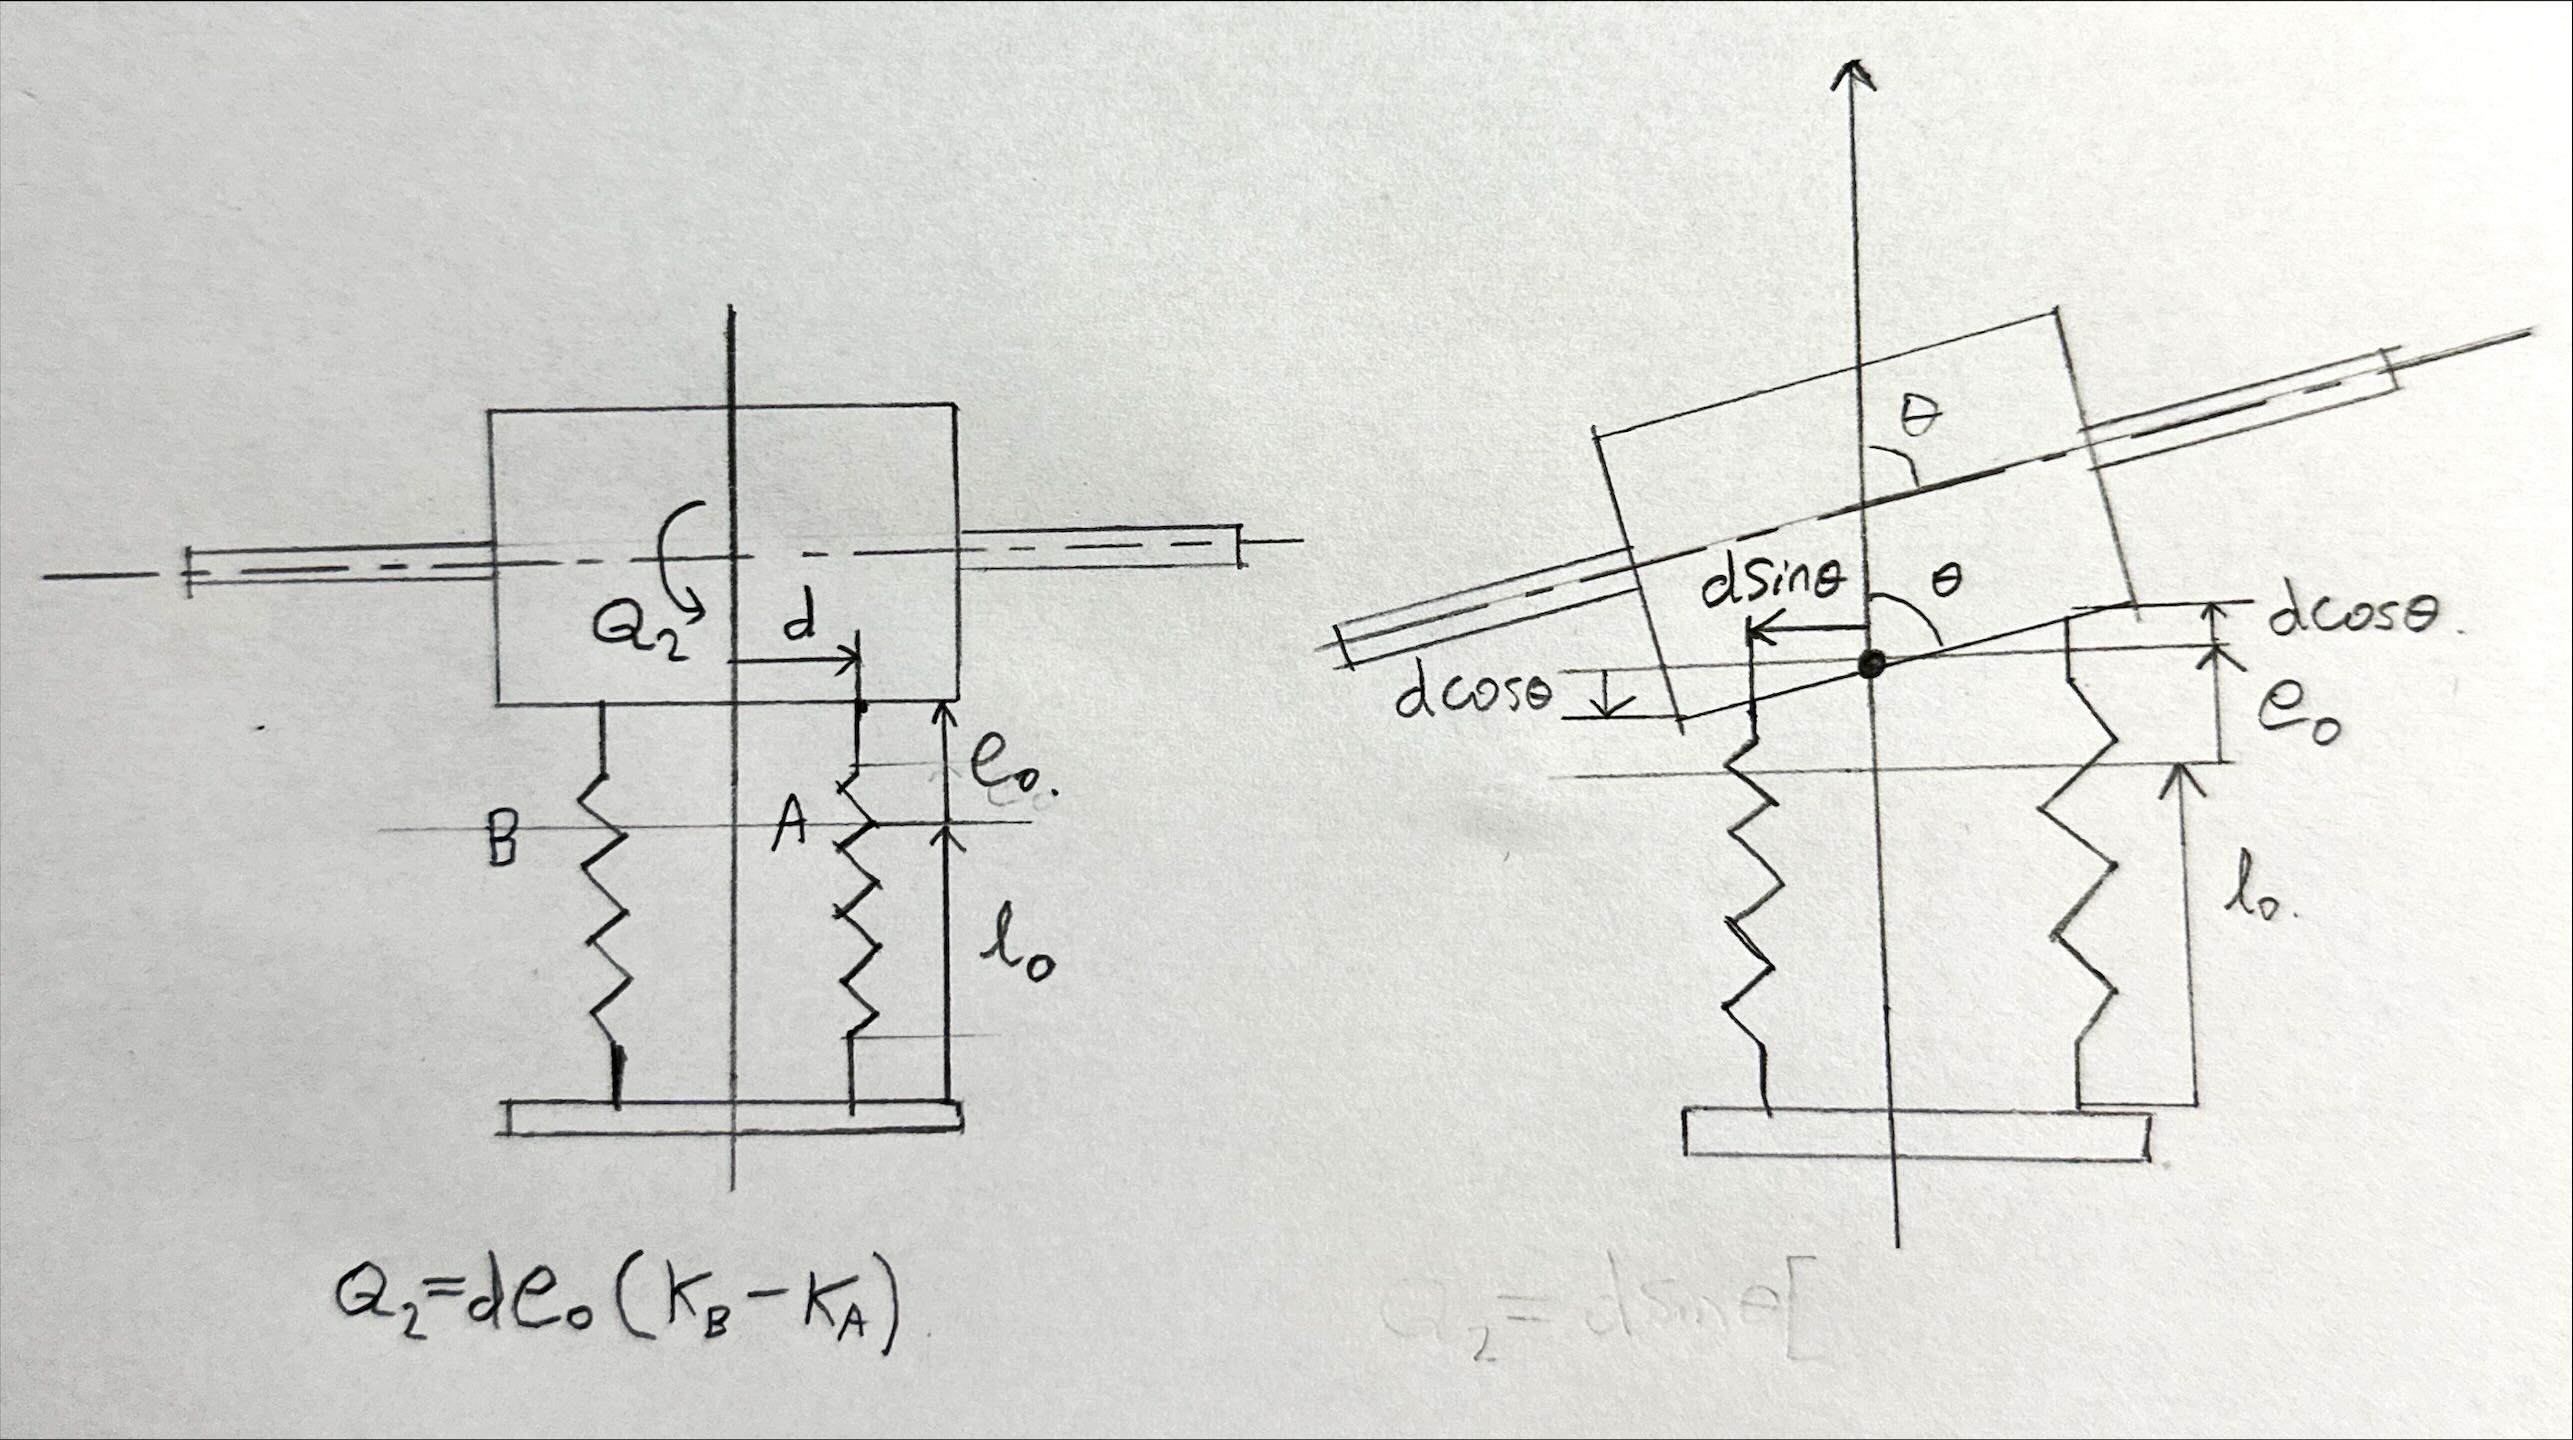 Q₂
d
e₀.
B
A
l₀
Q₂=de₀(K_B-K_A)
θ
dsinθ
θ
dcosθ.
dcosθ
e₀
l₀.
Q₂=dsinθ[